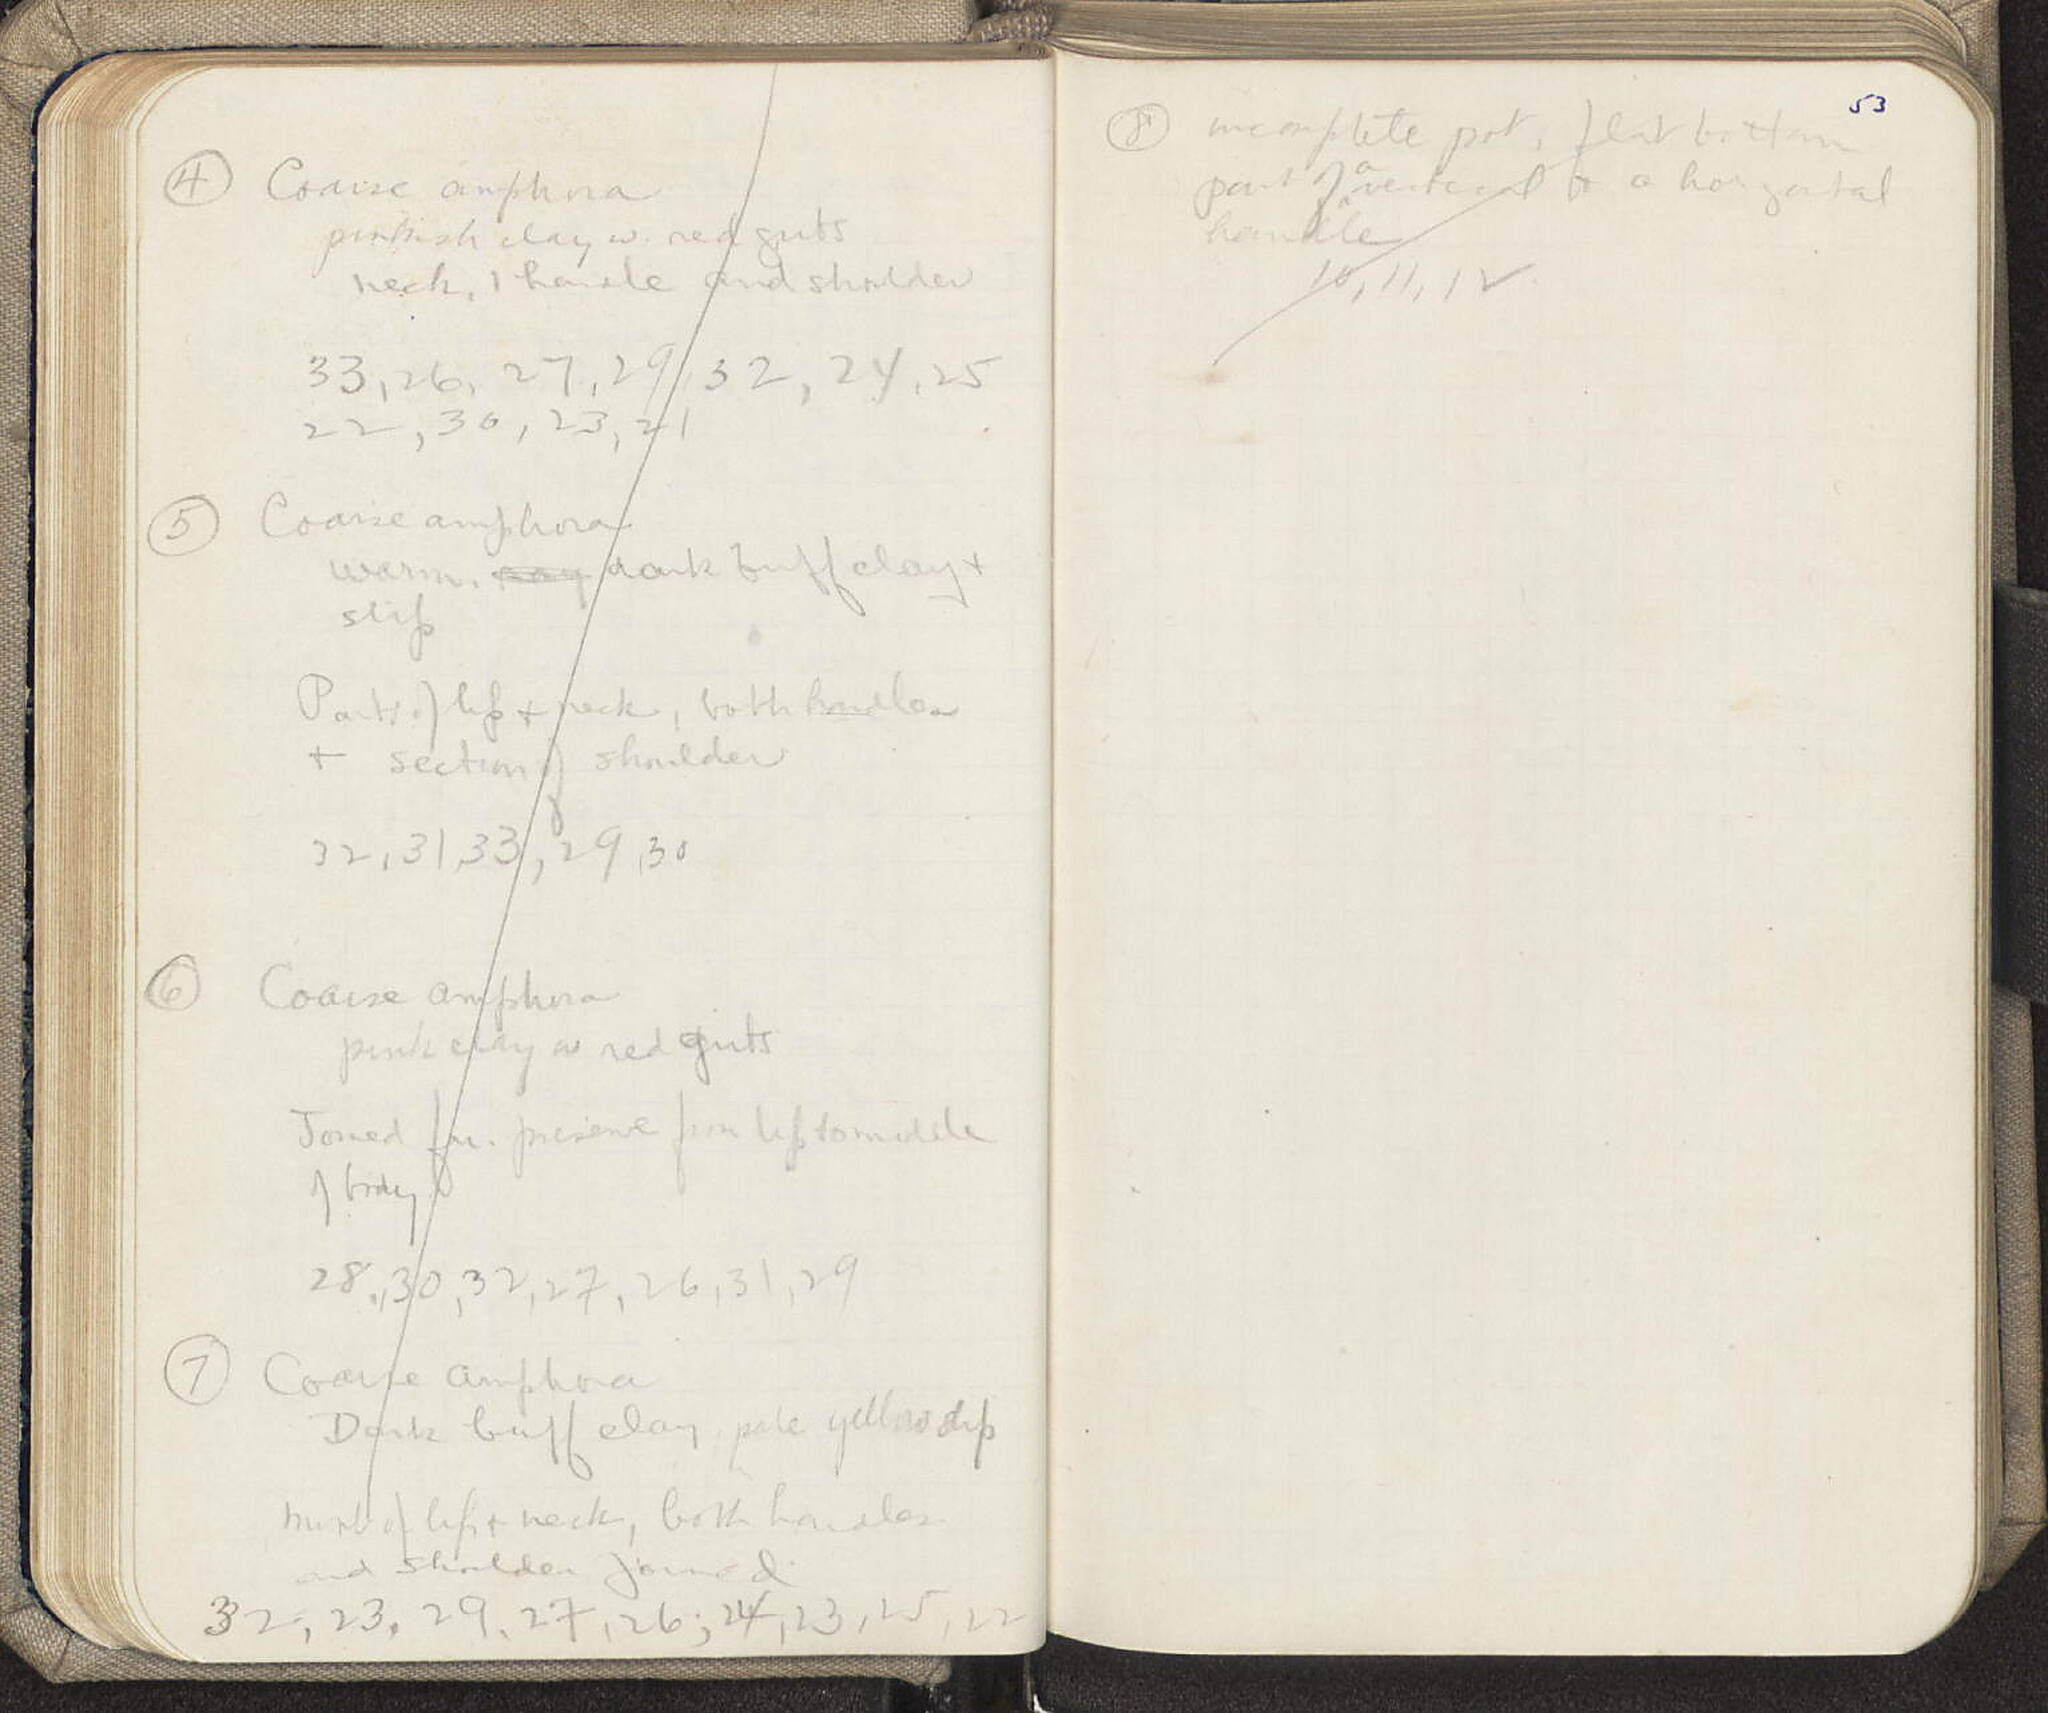 ④ Coarse amphora
pinkish clay w. red grits
neck, 1 handle and shoulder
33, 26, 27, 29, 32, 24, 25
22, 30, 23, 21
⑤ Coarse amphora
warm. dark buff clay +
slip
Parts of lip + neck, both handles
+ section of shoulder
32, 31, 33, 29, 30
⑥ Coarse amphora
pink clay w red grits
Joined fr. preserve from lip to middle
of body
28, 30, 32, 27, 26, 31, 29
⑦ Coarse amphora
Dark buff clay, pale yellow slip
most of lip + neck, both handles
and shoulder joined.
32, 23, 29, 27, 26, 24, 23, 25, 22
53
⑧ incomplete pot, flat bottom
part of a vertical & a horizontal
handle
10, 11, 12